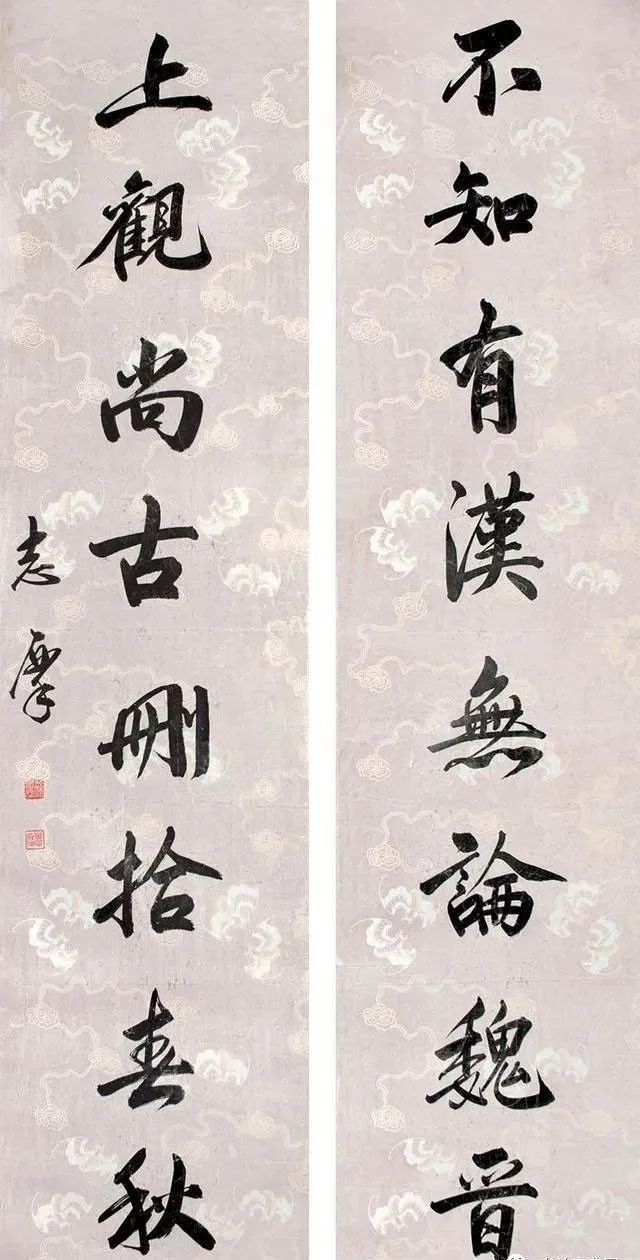 不知有漢無論魏晉
上觀尚古刪拾春秋
志摩